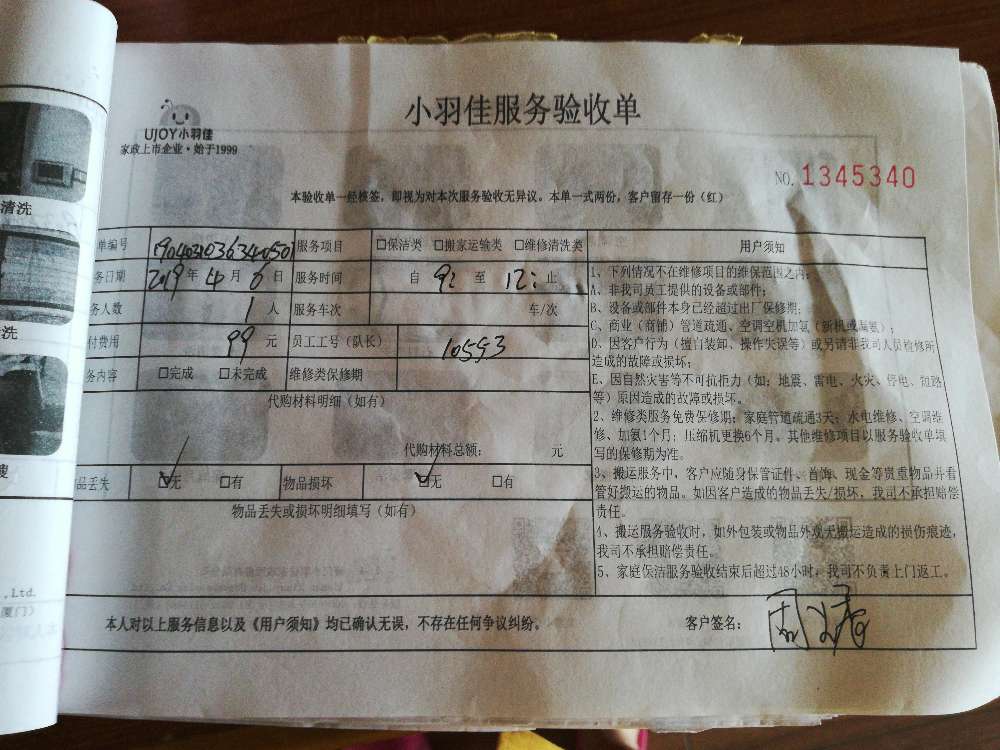 小羽佳服务验收单
UJOY小羽佳
家政上市企业·始于1999
NO. 1345340
本验收单一经核签，即视为对本次服务验收无异议。本单一式两份，客户留存一份（红）
单编号 服务项目 □保洁类 □搬家运输类 □维修清洗类 用户须知
务日期 2019年4月6日 服务时间 自 9: 至 12: 止
务人数 1 人 服务车次 车/次
付费用 99 元 员工工号（队长） 10553
务内容 □完成 □未完成 维修类保修期
代购材料明细（如有）
代购材料总额： 元
品丢失 ☑无 □有 物品损坏 ☑无 □有
物品丢失或损坏明细填写（如有）
1、下列情况不在维修项目的维保范围之内：
A、非我司员工提供的设备或部件；
B、设备或部件本身已经超过出厂保修期；
C、商业（商铺）管道疏通、空调空机加氨（新机或漏氨）；
D、因客户行为（擅自装卸、操作失误等）或另请非我司人员检修所
造成的故障或损坏；
E、因自然灾害等不可抗拒力（如：地震、雷电、火灾、停电、短路
等）原因造成的故障或损坏。
2、维修类服务免费保修期：家庭管道疏通3天；水电维修、空调维
修、加氨1个月；压缩机更换6个月。其他维修项目以服务验收单填
写的保修期为准。
3、搬运服务中，客户应随身保管证件、首饰、现金等贵重物品并看
管好搬运的物品。如因客户造成的物品丢失/损坏，我司不承担赔偿
责任。
4、搬运服务验收时，如外包装或物品外观无搬运造成的损伤痕迹，
我司不承担赔偿责任。
5、家庭保洁服务验收结束后超过48小时，我司不负责上门返工。
本人对以上服务信息以及《用户须知》均已确认无误，不存在任何争议纠纷。 客户签名：
清洗
洗
,Ltd.
厦门）